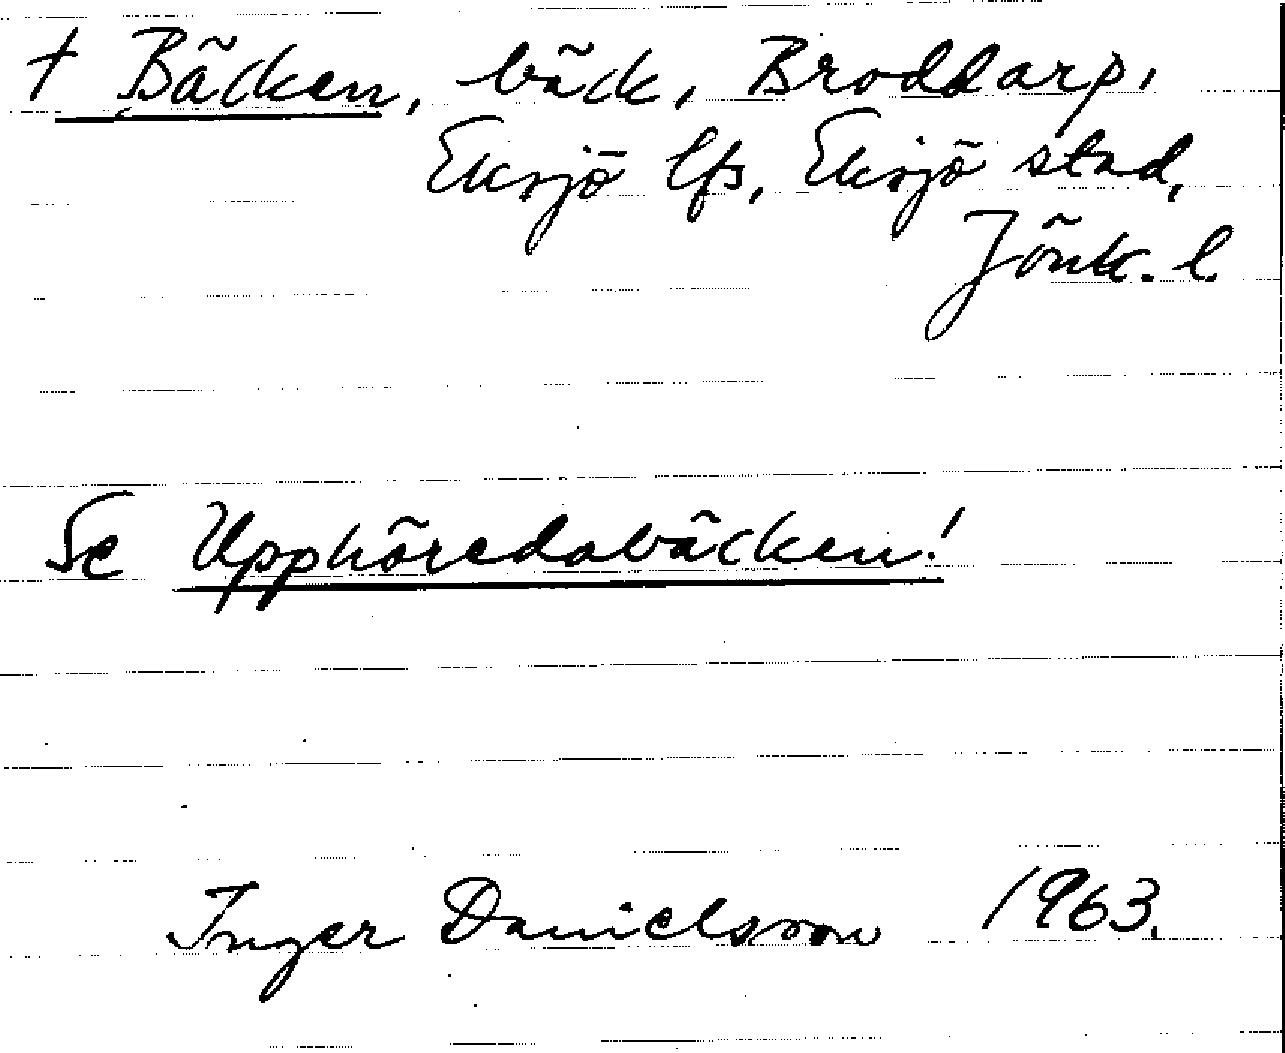 † Bäcken, bäck, Broddarp,
Eksjö lfs, Eksjö stad,
Jönk. l.
Se Upphöredabäcken!
Inger Danielsson 1963.